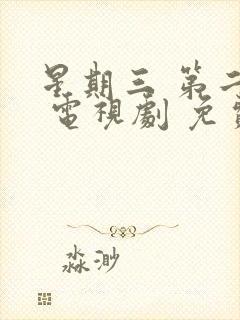 星期三 第二
電視劇 免費
淼渺